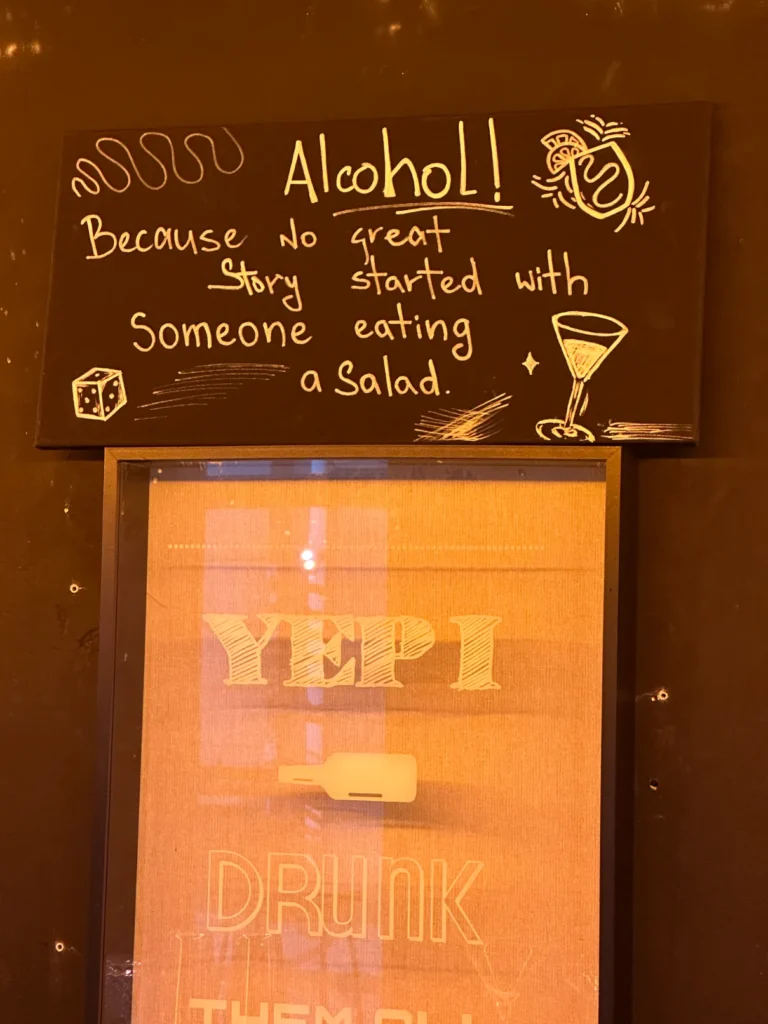 Alcohol!
Because No great
Story started with
Someone eating
a Salad.
YEP I
DRUNK
THEM ALL